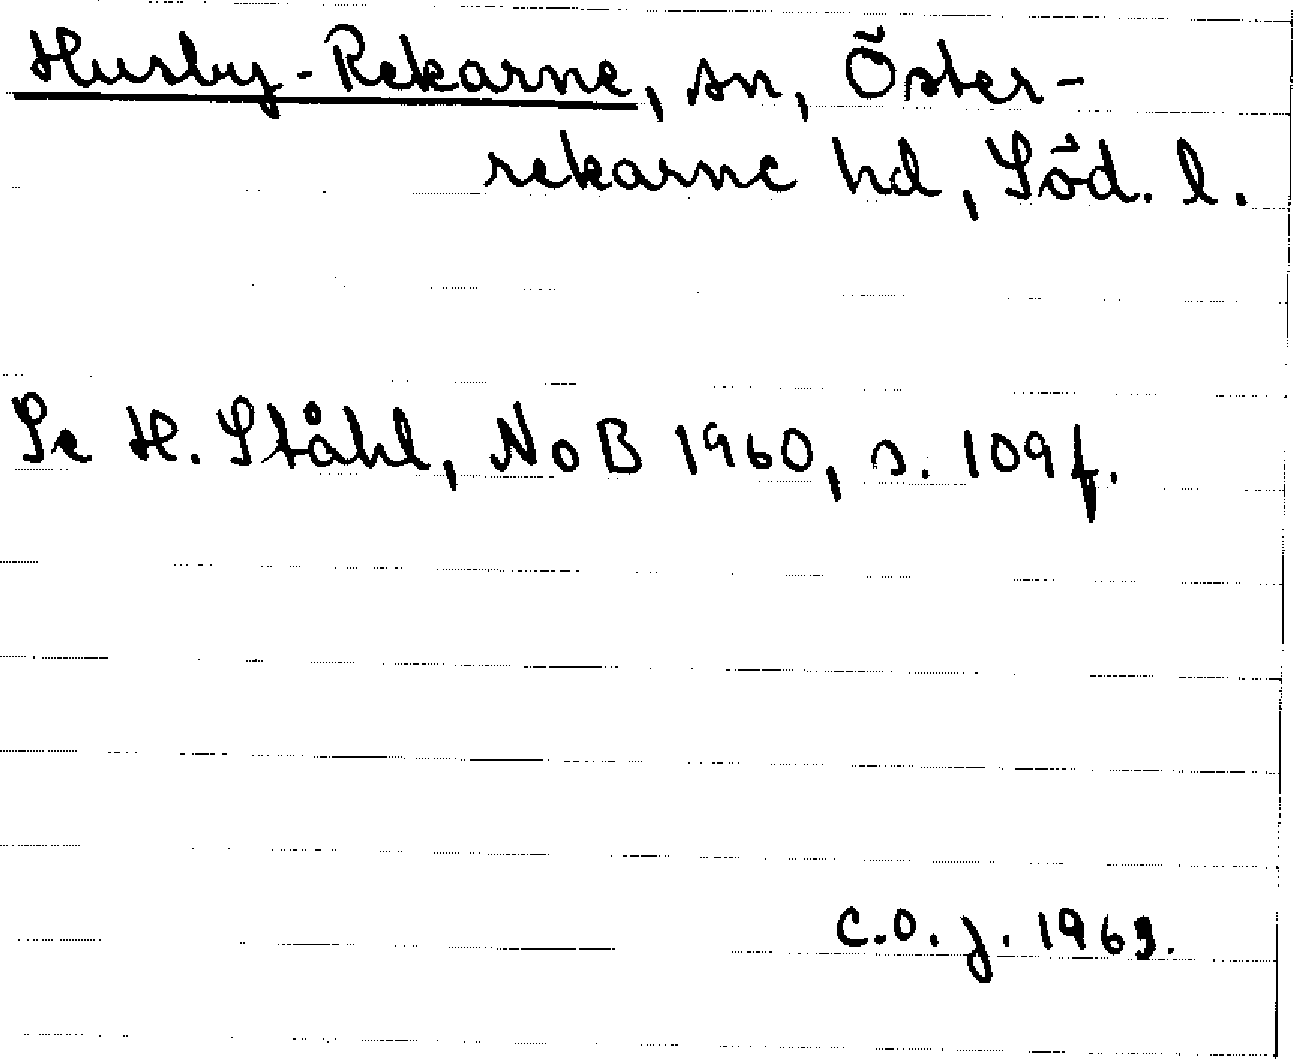 Husby-Rekarne, sn, Öster-
rekarne hd, Söd. l.
Se H. Ståhl, NoB 1960, s. 109 f.
C.O.J. 1963.